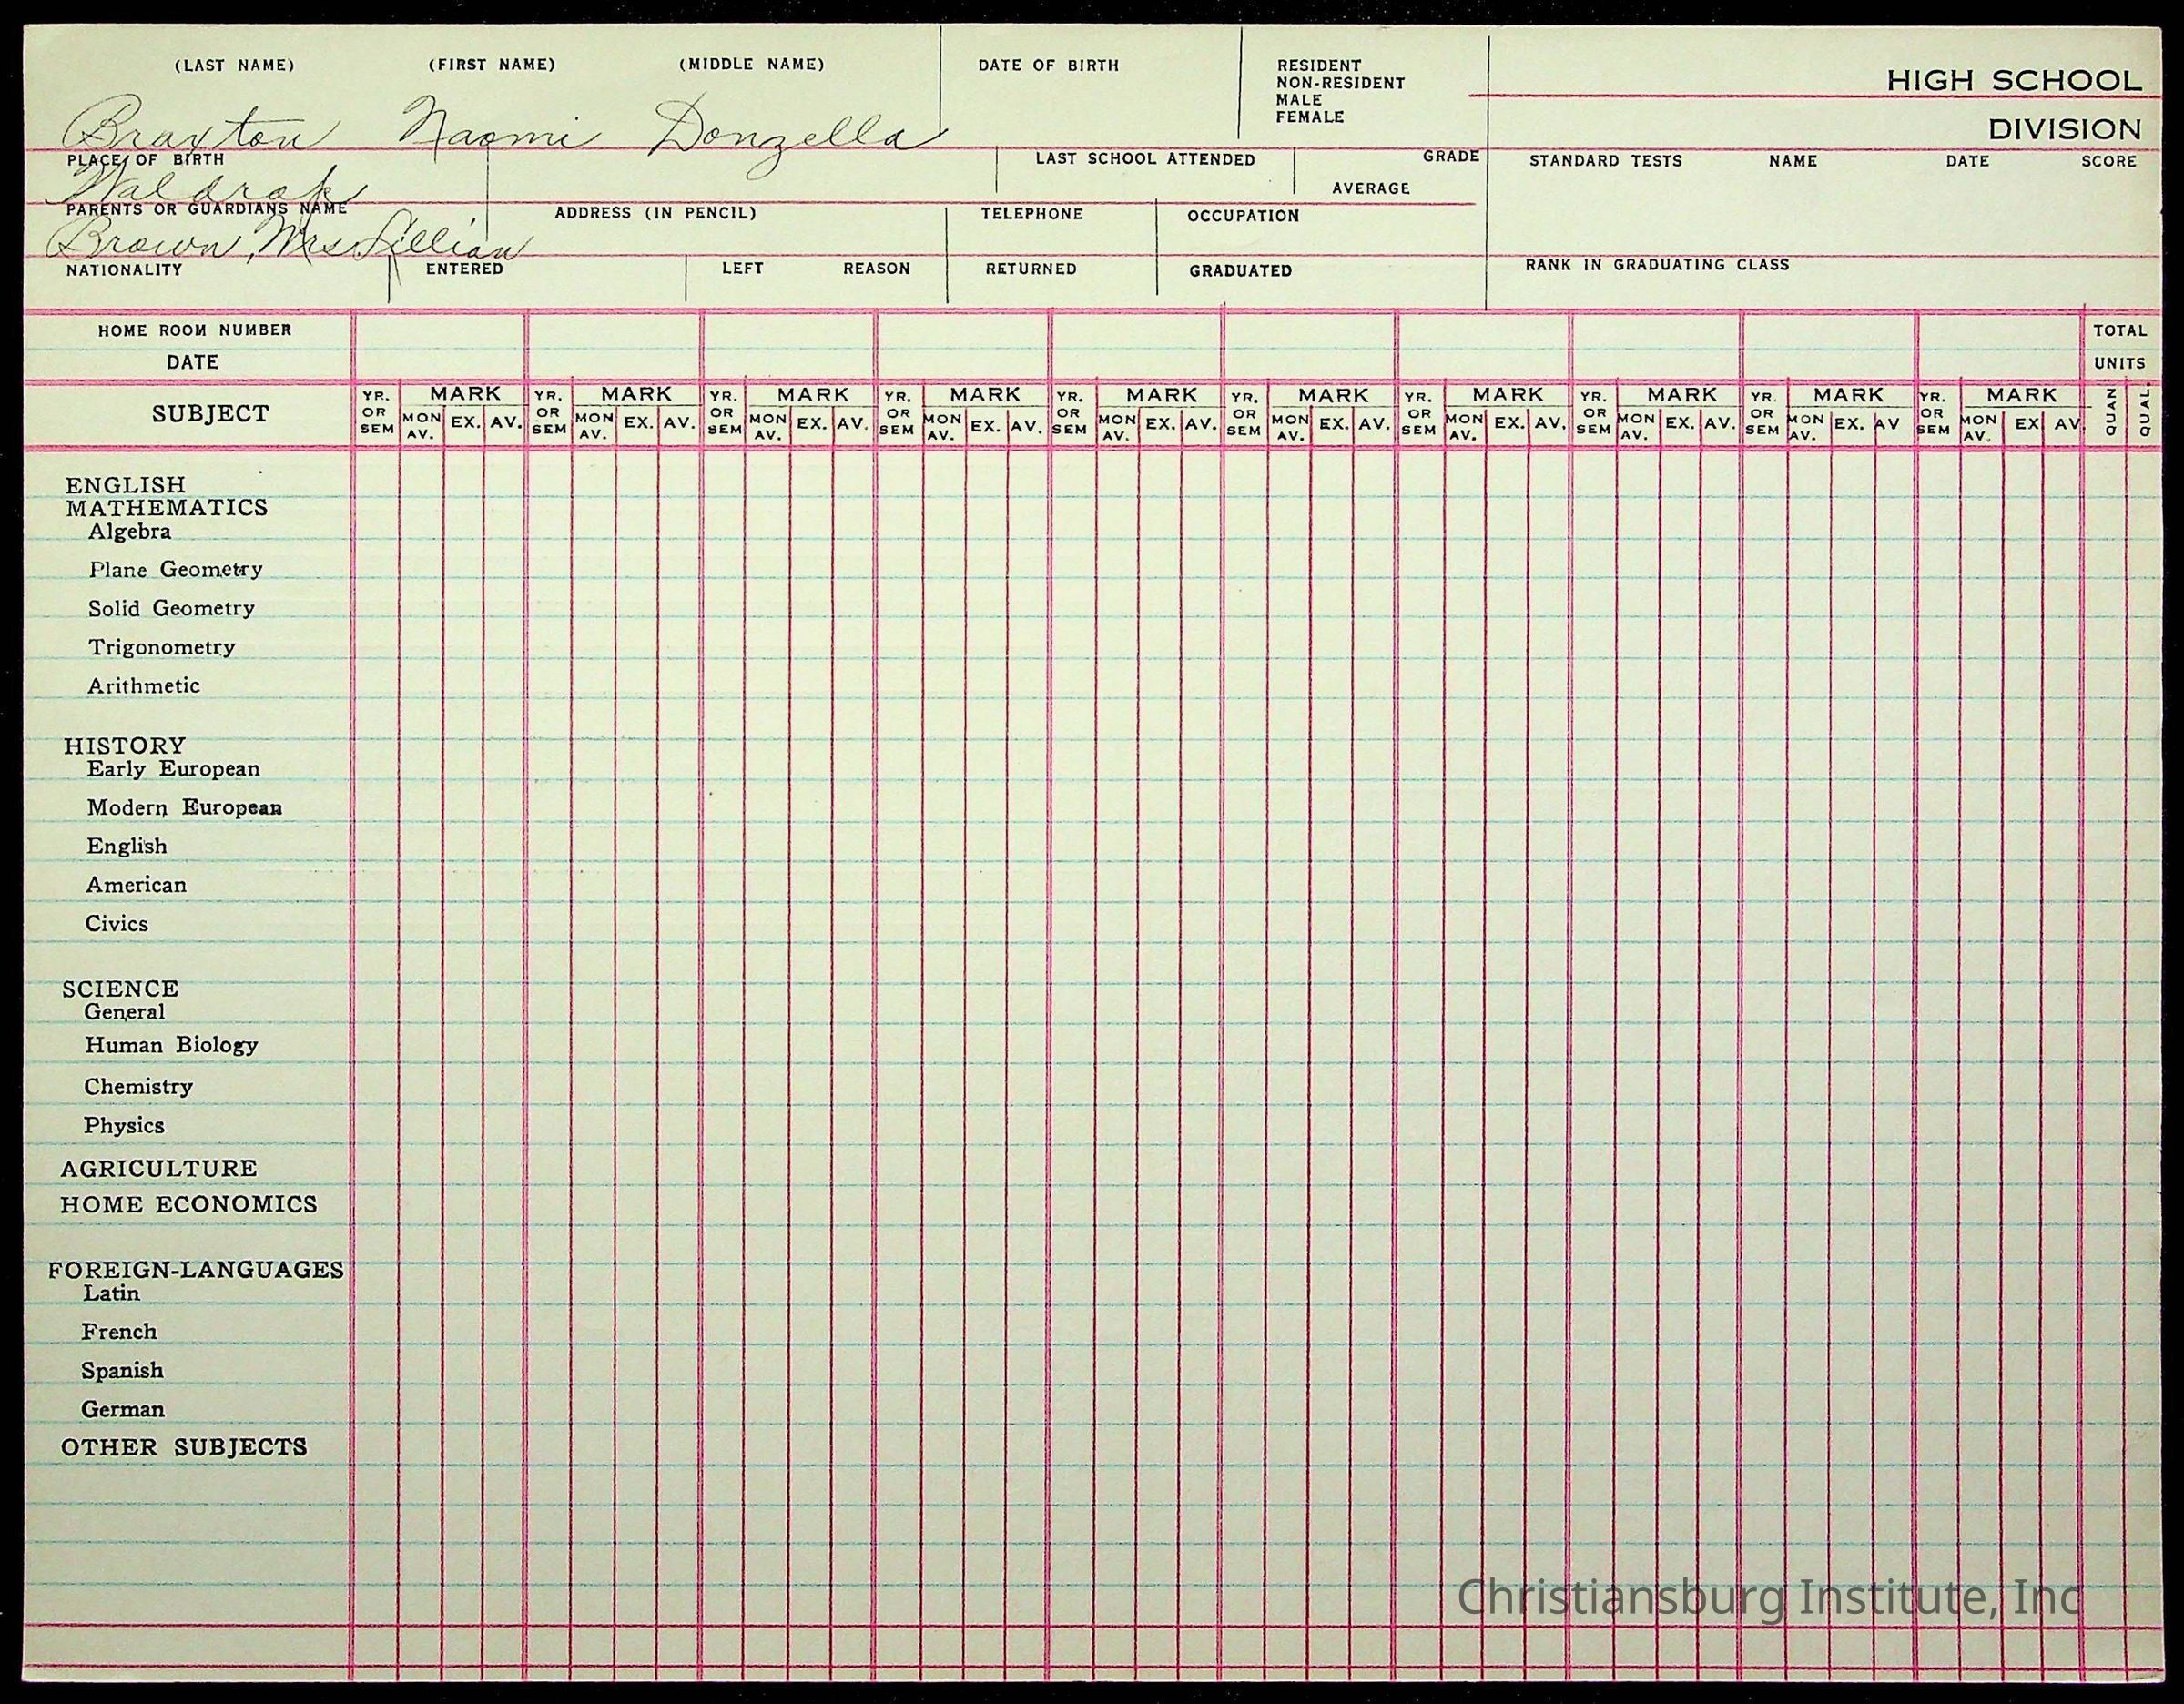 (LAST NAME) (FIRST NAME) (MIDDLE NAME) DATE OF BIRTH RESIDENT
NON-RESIDENT
MALE
FEMALE
HIGH SCHOOL
DIVISION
Braxton Naomi Donzella
PLACE OF BIRTH LAST SCHOOL ATTENDED GRADE
AVERAGE
STANDARD TESTS NAME DATE SCORE
Waldrop
PARENTS OR GUARDIANS NAME ADDRESS (IN PENCIL) TELEPHONE OCCUPATION
Brown, Mrs. Lillian
NATIONALITY ENTERED LEFT REASON RETURNED GRADUATED RANK IN GRADUATING CLASS
HOME ROOM NUMBER TOTAL
DATE UNITS
SUBJECT
YR. OR SEM MARK MON AV. EX. AV.
YR. OR SEM MARK MON AV. EX. AV.
YR. OR SEM MARK MON AV. EX. AV.
YR. OR SEM MARK MON AV. EX. AV.
YR. OR SEM MARK MON AV. EX. AV.
YR. OR SEM MARK MON AV. EX. AV.
YR. OR SEM MARK MON AV. EX. AV.
YR. OR SEM MARK MON AV. EX. AV.
YR. OR SEM MARK MON AV. EX. AV
YR. OR SEM MARK MON AV. EX AV
QUAN QUAL.
ENGLISH
MATHEMATICS
Algebra
Plane Geometry
Solid Geometry
Trigonometry
Arithmetic
HISTORY
Early European
Modern European
English
American
Civics
SCIENCE
General
Human Biology
Chemistry
Physics
AGRICULTURE
HOME ECONOMICS
FOREIGN-LANGUAGES
Latin
French
Spanish
German
OTHER SUBJECTS
Christiansburg Institute, Inc